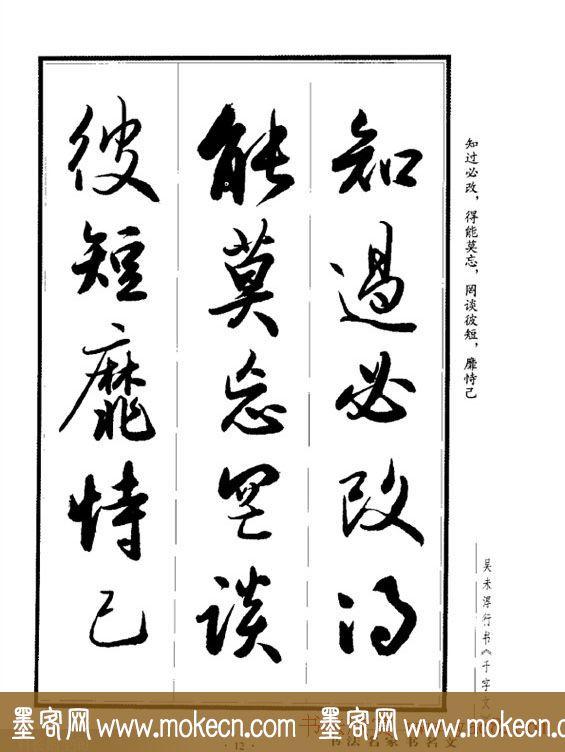 知過必改得
能莫忘罔談
彼短靡恃己
知过必改，得能莫忘，罔谈彼短，靡恃己
吴未淳行书《千字文
墨客网 www.mokecn.com 墨客网 www.mokecn.com
·12·
书法名家书名文